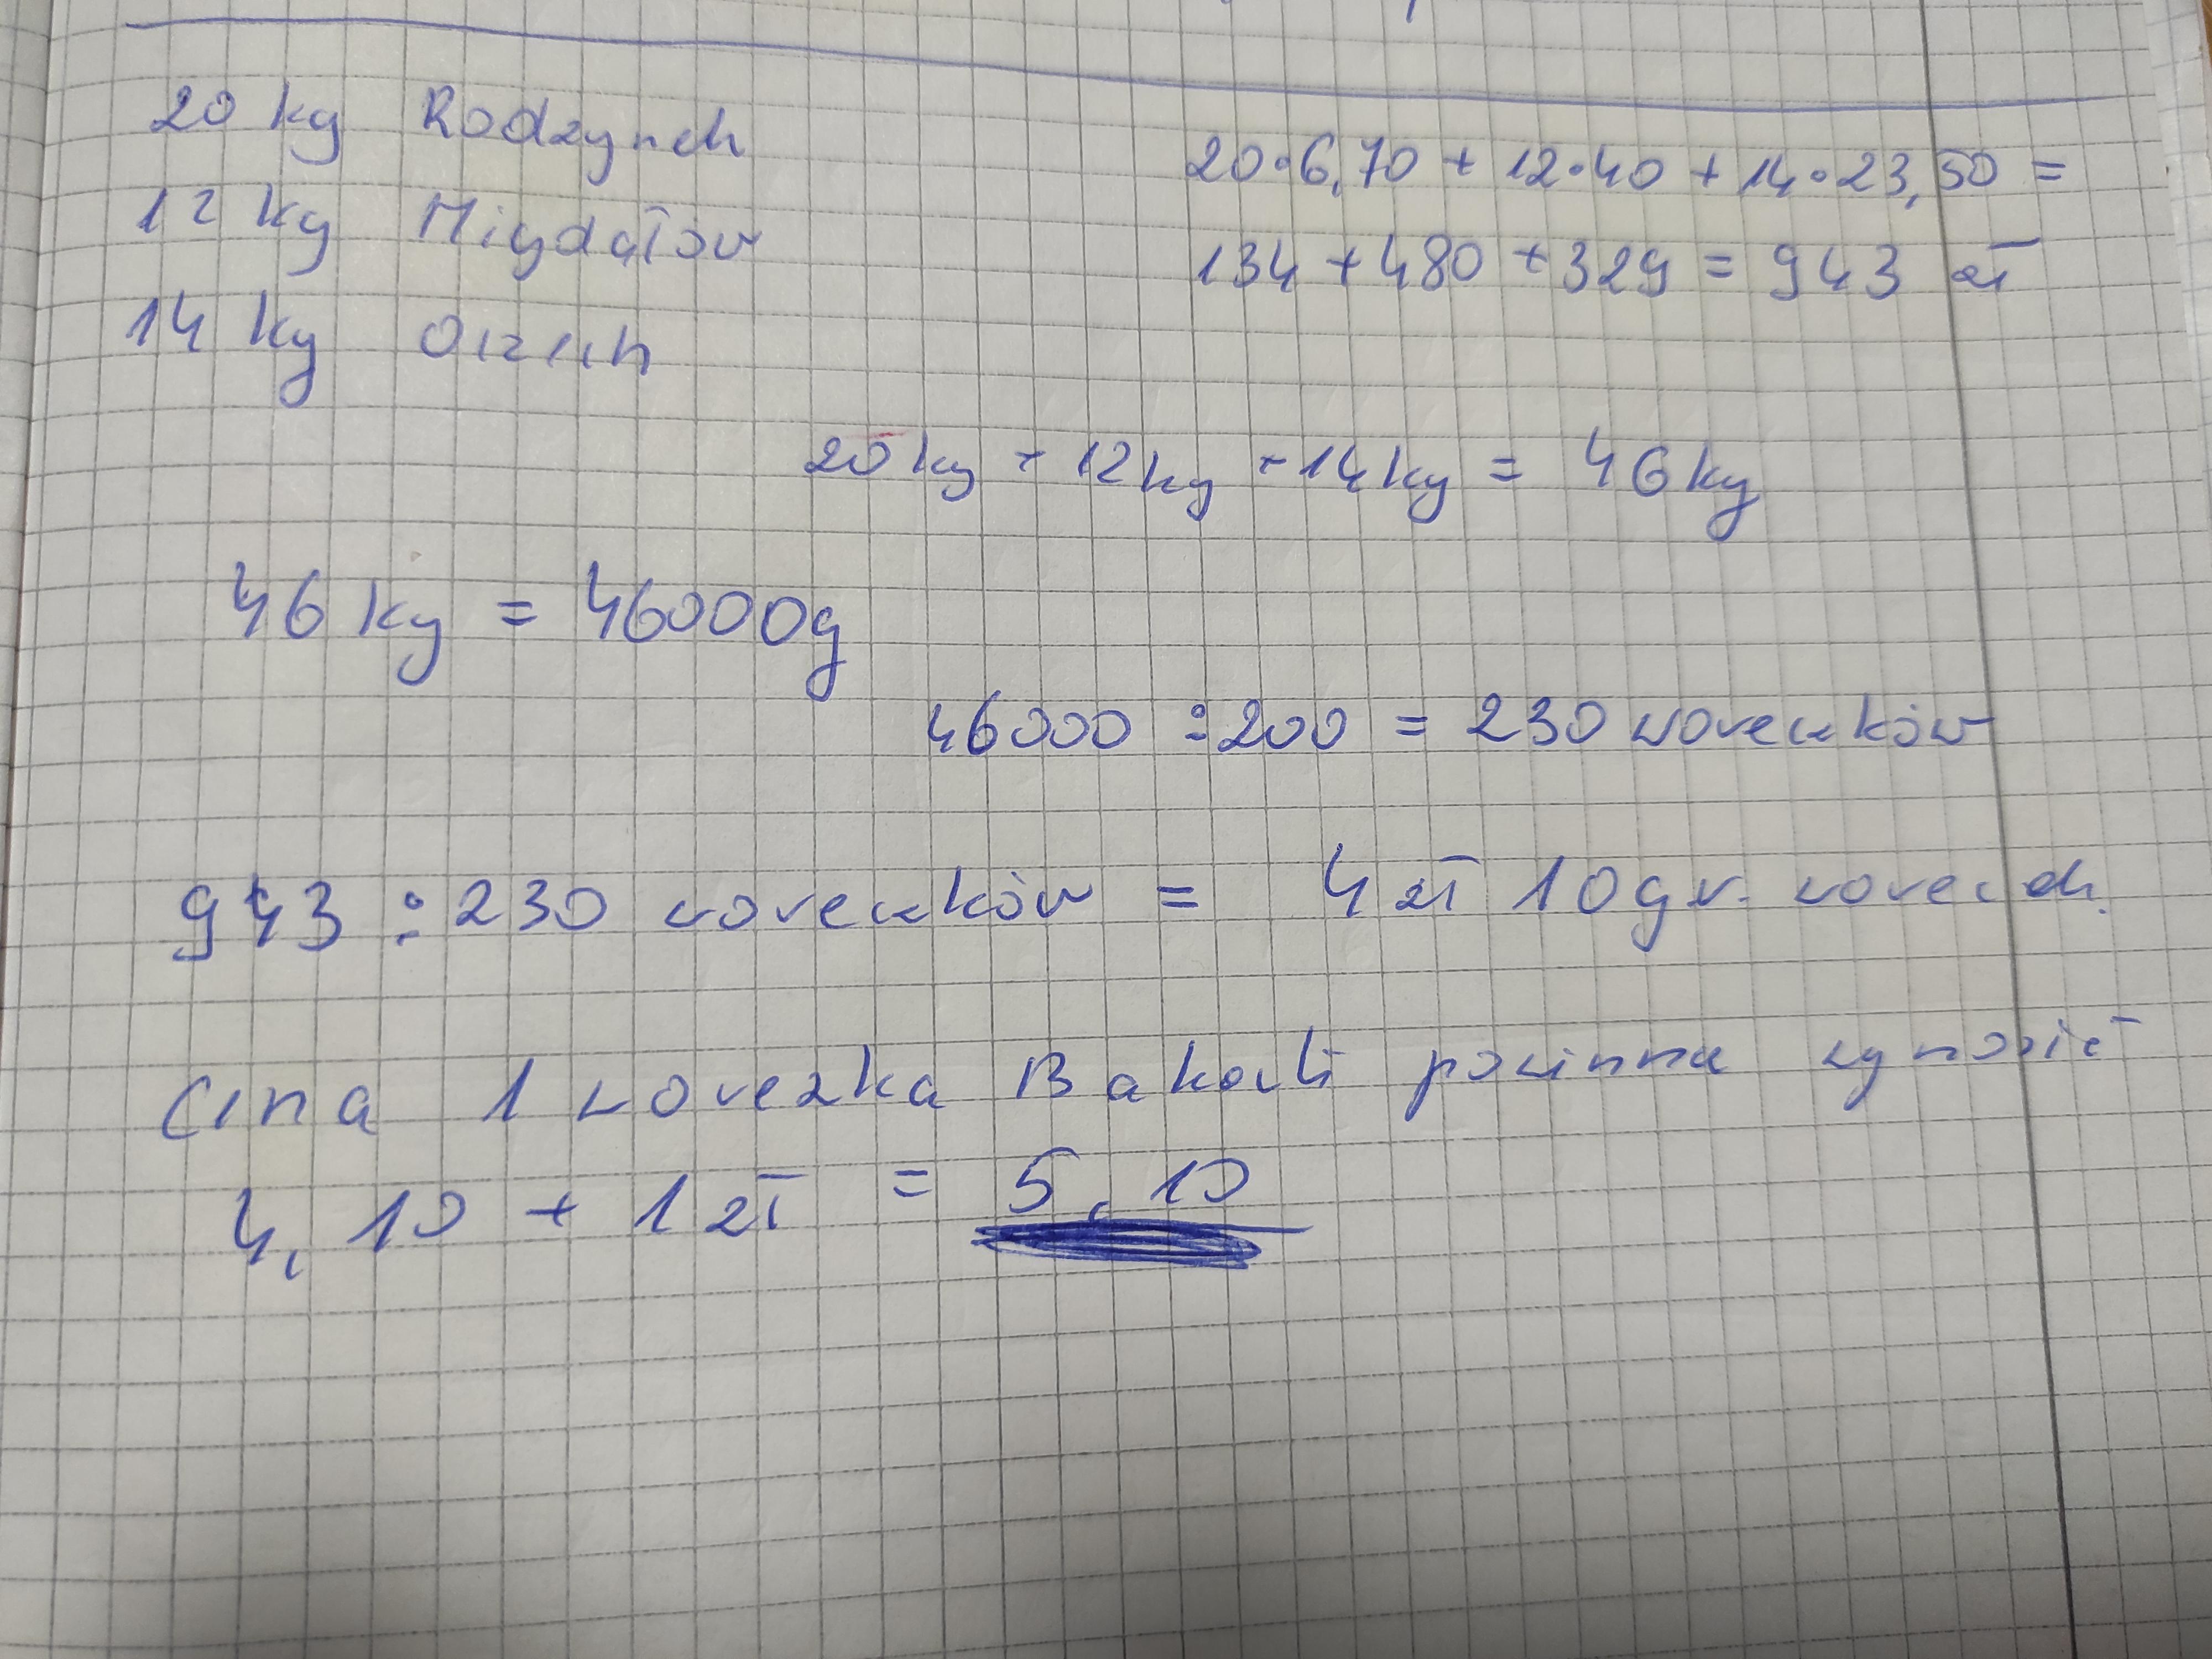 20 kg Rodzynek
20·6,70 + 12·40 + 14·23,50 =
12 kg Migdałów
134 + 480 + 329 = 943 zł
14 kg Orzech
20 kg + 12 kg + 14 kg = 46 kg
46 kg = 46000g
46000 : 200 = 230 woreczków
943 : 230 woreczków = 4 zł 10 gr. woreczek.
Cena 1 woreczka Bakalii powinna wynosić
4,10 + 1 zł = 5,10